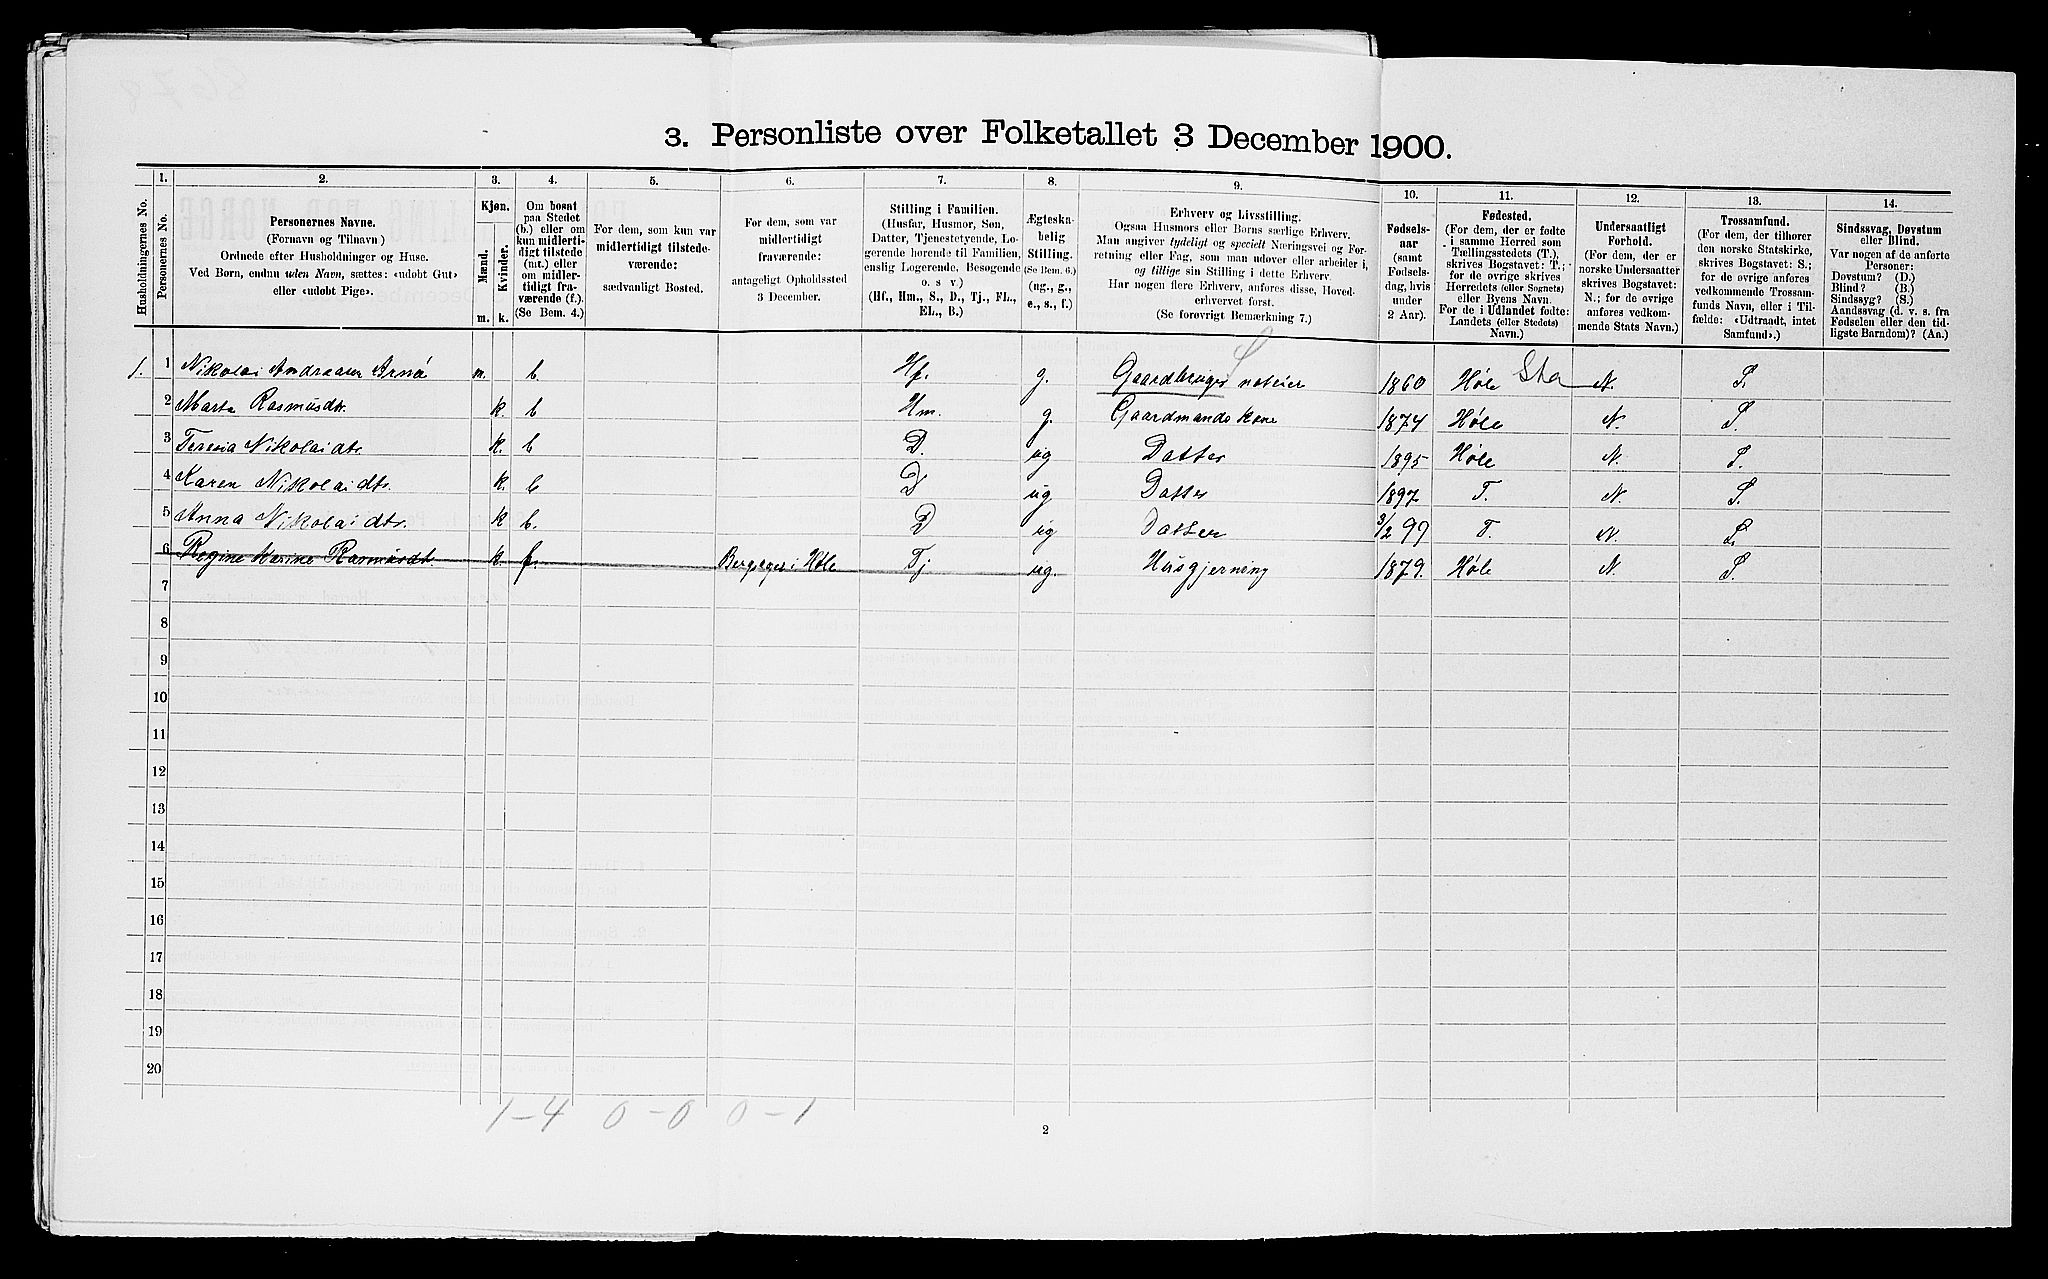 3. Personliste over Folketallet 3 December 1900.
Husholdningernes No.
1.
Personernes No.
2.
Personernes Navne.
(Fornavn og Tilnavn)
Ordnede efter Husholdninger og Huse.
Ved Børn, endnu uden Navn, sættes: «udøbt Gut»
eller «udøbt Pige».
3.
Kjøn.
Mænd.
Kvinder.
m.
k.
4.
Om bosat
paa Stedet
(b.) eller om
kun midlerti-
digt tilstede
(mt.) eller
om midler-
tidigt fra-
værende (f.).
(Se Bem. 4.)
5.
For dem, som kun var
midlertidigt tilstede-
værende:
sædvanligt Bosted.
6.
For dem, som var
midlertidigt
fraværende:
antageligt Opholdssted
3 December.
7.
Stilling i Familien.
(Husfar, Husmor, Søn,
Datter, Tjenestetyende, Lo-
gerende hørende til Familien,
enslig Logerende, Besøgende
o. s. v.)
(Hf., Hm., S., D., Tj., FL.,
EL., B.)
8.
Ægteska-
belig
Stilling.
(Se Bem. 6.)
(ug., g.,
e., s., f.)
9.
Erhverv og Livsstilling.
Ogsaa Husmors eller Børns særlige Erhverv.
Man angiver tydeligt og specielt Næringsvei og For-
retning eller Fag, som man udøver eller arbeider i,
og tillige sin Stilling i dette Erhverv.
Har nogen flere Erhverv, anføres disse, Hoved-
erhvervet først.
(Se forøvrigt Bemærkning 7.)
10.
Fødsels-
aar
(samt
Fødsels-
dag, hvis
under
2 Aar).
11.
Fødested.
(For dem, der er fødte
i samme Herred som
Tællingsstedets (T.),
skrives Bogstavet: T.;
for de øvrige skrives
Herredets (eller Sognets)
eller Byens Navn.
For de i Udlandet fødte:
Landets (eller Stedets)
Navn.)
12.
Undersaatligt
Forhold.
(For dem, der er
norske Undersaatter
skrives Bogstavet:
N.; for de øvrige
anføres vedkom-
mende Stats Navn.)
13.
Trossamfund.
(For dem, der tilhører
den norske Statskirke,
skrives Bogstavet: S.;
for de øvrige anføres
vedkommende Trossam-
funds Navn, eller i Til-
fælde: «Udtraadt, intet
Samfund».)
14.
Sindssvag, Døvstum
eller Blind.
Var nogen af de anførte
Personer:
Døvstum? (D.)
Blind? (B.)
Sindssyg? (S.)
Aandssvag (d. v. s. fra
Fødselen eller den tid-
ligste Barndom)? (Aa.)
1. 1 Nikolai Andreasen Arnø m. b. Hf. g. Gaardbruger S 1860 Høle Sta N. S.
2 Marta Rasmusdtr. k. b Hm. g. Gaardmandskone 1874 Høle N. S.
3 Teresia Nikolaidtr. k. b D. ug Datter 1895 Høle N. S.
4 Karen Nikolaidtr. k. b D ug Datter 1897 T. N. S.
5 Anna Nikolaidtr. k b. D ug Datter 3/2 99 T. N. S.
6 Regine Karine Rasmusdt k. f. i Høle Tj. ug. Husgjerning 1879. Høle N. S.
7
8
9
10
11
12
13
14
15
16
17
18
19
20
1-4 0-0 0-1
2